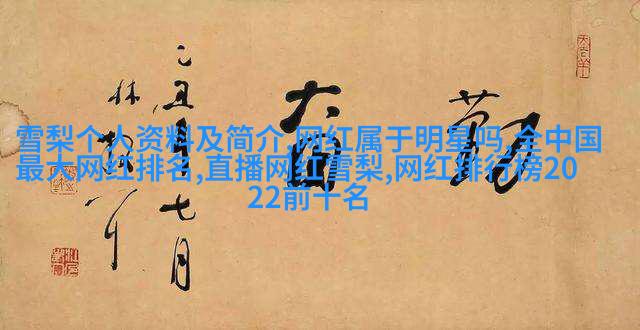 雪梨个人资料及简介,网红属于明星吗,全中国
最大网红排名,直播网红雪梨,网红排行榜20
22前十名
勤
大
乙丑年七月
林散耳